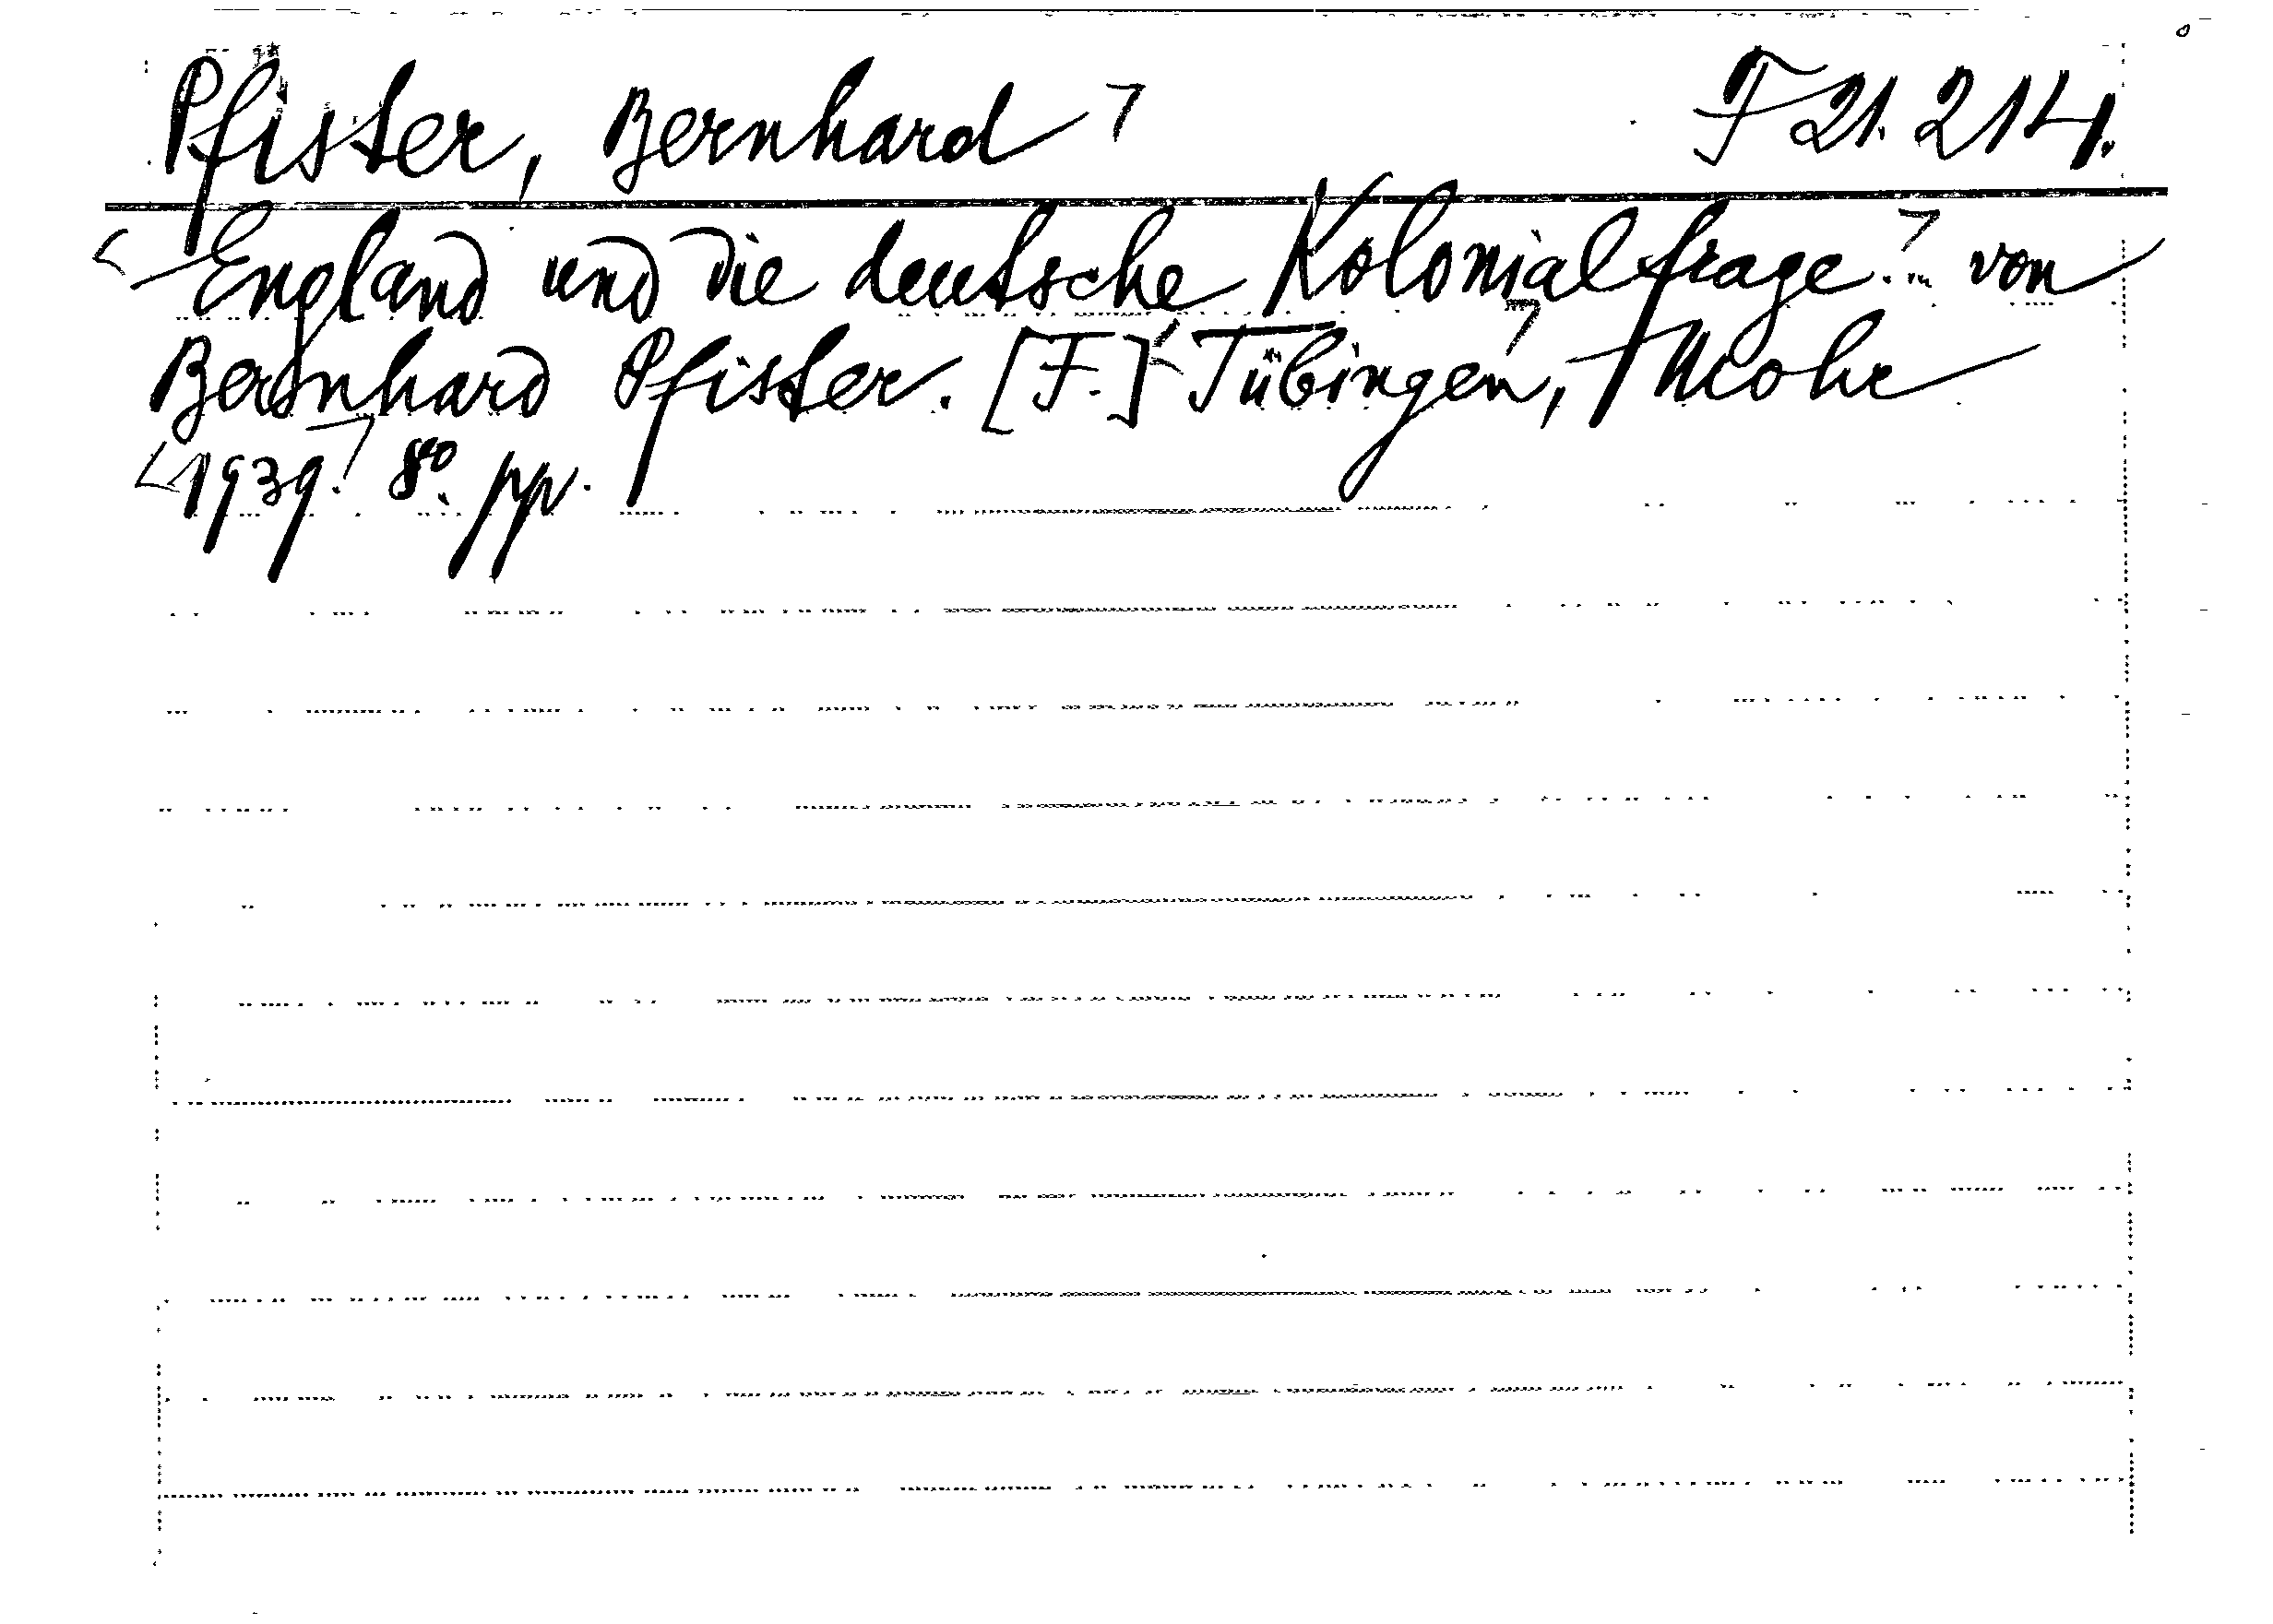 Pfister, Bernhard F 21.214.
England und die deutsche Kolonialfrage. von
Bernhard Pfister. [F.] Tübingen, Mohr
1939. 8o. pp.